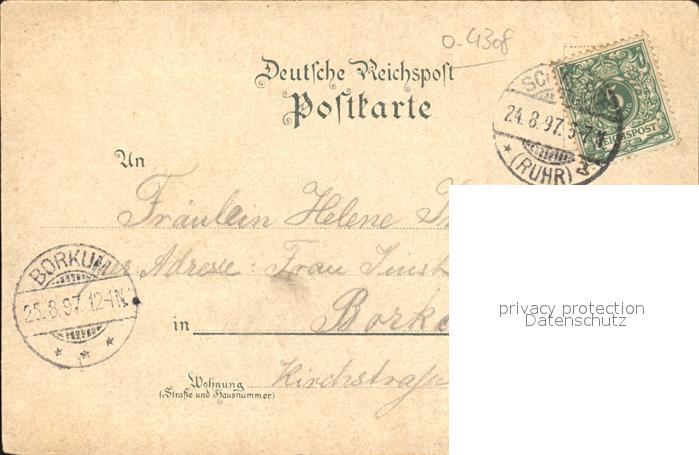 0-4308
Deutsche Reichspost
Postkarte
SC
24.8.97.5-7N.
(RUHR)
5
REICHSPOST
An
Fräulein Helene
Adresse: Frau
BORKUM
25.8.97.12-1N.
in Borku
Wohnung Kirchstraße
(Straße und Hausnummer)
privacy protection
Datenschutz